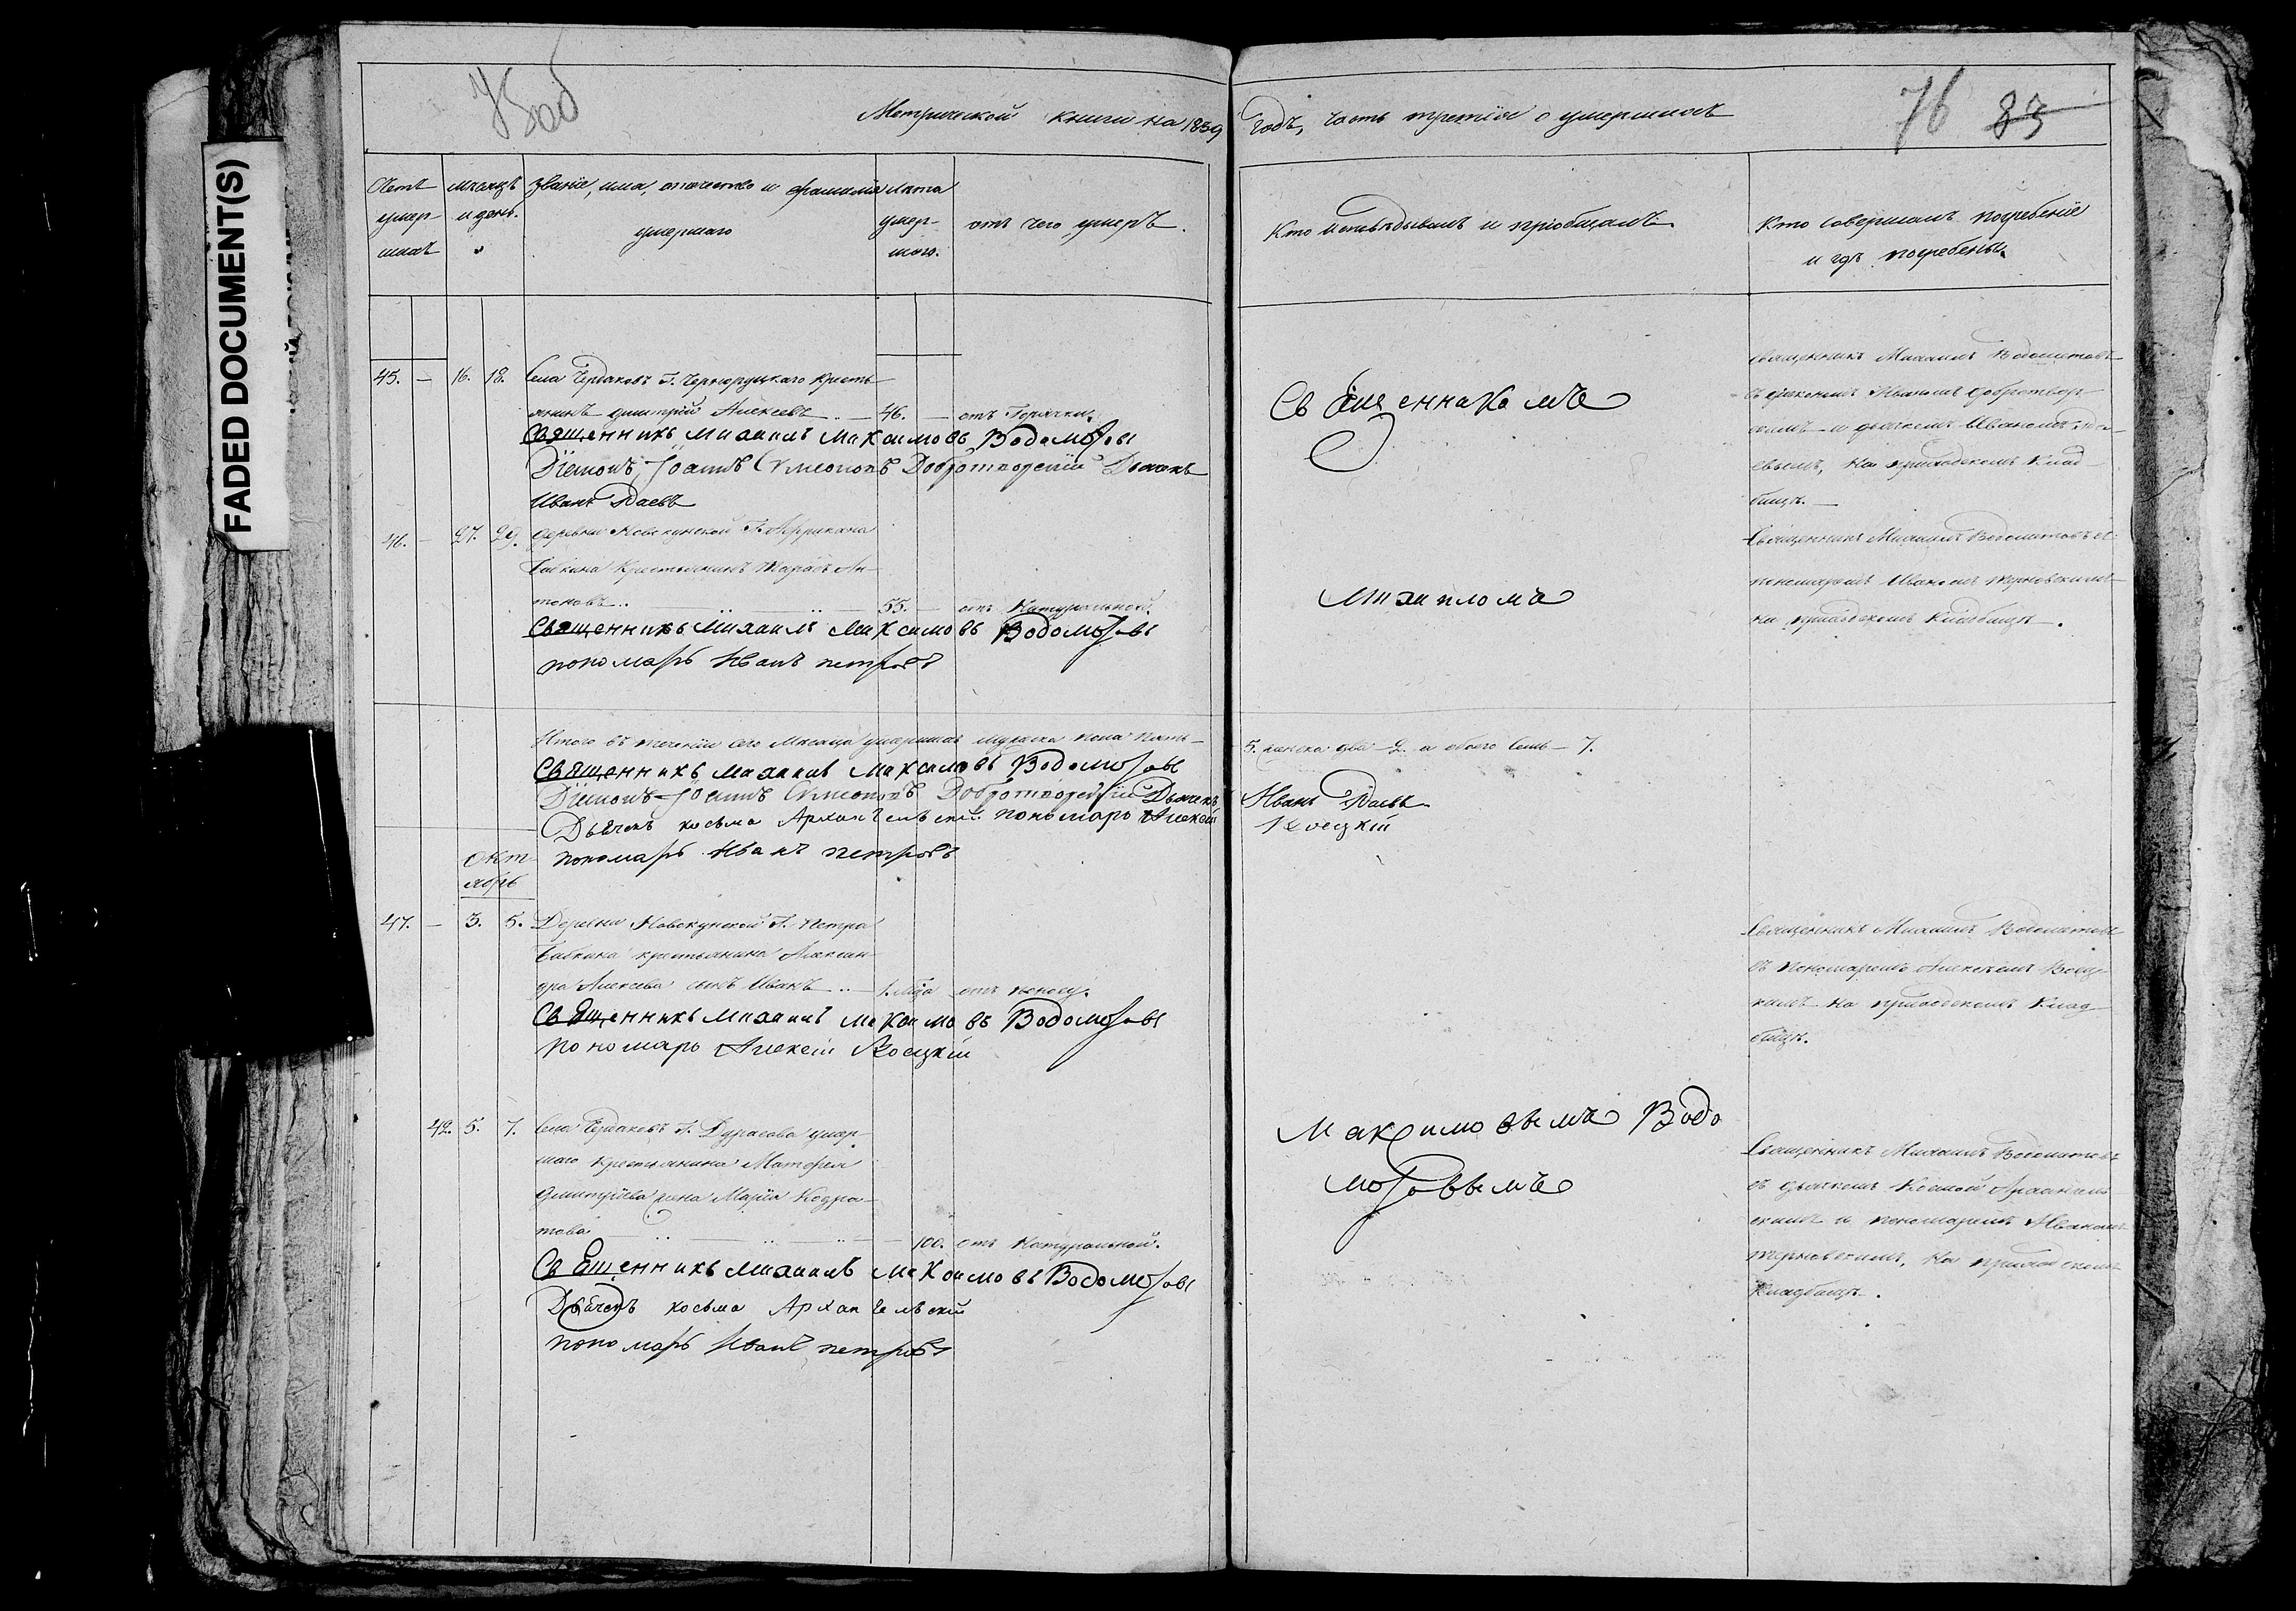 75об
76 83
FADED DOCUMENT(S)
Метрической книги на 1859 годъ, часть третія о умершихъ
Счетъ умер-шихъ
мѣсяцъ и день.
Званіе, имя, отечество и фамилія умершаго
лѣта умер-шаго.
отъ чего умеръ.
Кто исповѣдывалъ и пріобщалъ.
Кто совершалъ погребеніе и гдѣ погребены.
45. — 16. 18. Села Чердаковъ Г. Черноруцкаго кресть-
янинъ Димитрій Алексѣевъ .. — 46. — отъ Горячки.
Священникъ Михаилъ Максимовъ Водомотовъ
Діаконъ Іоаннъ Симеоновъ Добротворскій Дьячекъ
Иванъ Ѳдаевъ
Священникомъ
священникъ Михаилъ Водомотовъ
съ діакономъ Иваномъ Добротвор-
скимъ и дьячкомъ Иваномъ Ѳда-
евымъ, на приходскомъ клад-
бищѣ. —
46. — 27. 29. деревни Новокунской Г. Африкана
Бабкина крестьянинъ Тарасъ Ан-
тоновъ .. — .. — .. — 55. — отъ Натуральной.
Священникъ Михаилъ Максимовъ Водомотовъ
пономарь Иванъ Петровъ
Михаиломъ
Священникъ Михаилъ Водомотовъ съ
пономаремъ Иваномъ Терновскимъ
на приходскомъ кладбищѣ.
Итого въ теченіи сего Мѣсяца умершихъ мужеска пола пять —
5. женска два — 2. а обоего семь — 7.
Священникъ Михаилъ Максимовъ Водомотовъ
Діаконъ Іоаннъ Симеоновъ Добротворскій Дьячекъ Иванъ Ѳдаевъ
Дьячекъ Косьма Архангельскій пономарь Алексій
пономарь Иванъ Петровъ
Окт-
ябрь
47. — 3. 5. Деревни Новокунской Г. Петра
Бабкина крестьянина Алексан-
дра Алексѣева сынъ Иванъ .. — 1. мца отъ поносу.
Священникъ Михаилъ Максимовъ Водомотовъ
пономарь Алексій
Священникъ Михаилъ Водомотовъ
съ пономаремъ Алексѣемъ
на приходскомъ клад-
бищѣ.
42. 5. 7. Села Чердаковъ Г. Дурасова умер-
шаго крестьянина Матфея
Димитріева жена Марія Кодра-
това .. — .. — .. — 100. отъ Натуральной.
Священникъ Михаилъ Максимовъ Водомотовъ
Дьячекъ Косьма Архангельскій
пономарь Иванъ Петровъ
Максимовымъ Водо
мотовымъ
Священникъ Михаилъ Водомотовъ
съ дьячкомъ Космой Архангель-
скимъ и пономаремъ Иваномъ
Терновскимъ, на приходскомъ
кладбищѣ.